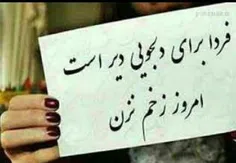 فردا برای دلجویی دیر است
امروز زخم نزن